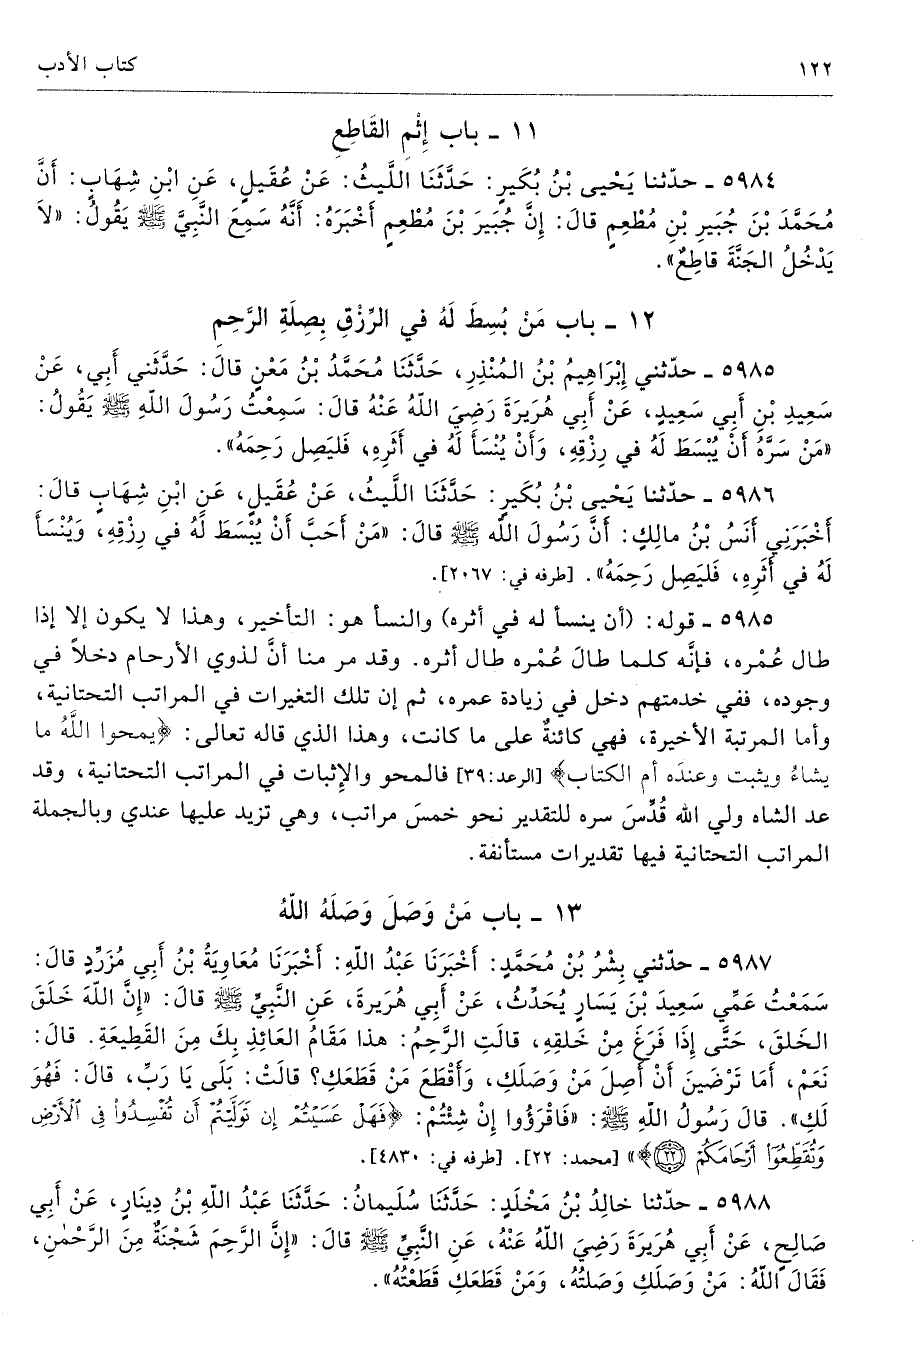 ١٢٢ كتاب الأدب
١١ ـ باب إِثْمِ القَاطِعِ
٥٩٨٤ ـ حدّثنا يَحْيى بْنُ بُكَيرٍ: حَدَّثَنَا اللَّيثُ: عَنْ عُقَيلٍ، عَنِ ابْنِ شِهَابٍ: أَنَّ
مُحَمَّدَ بْنَ جُبَيرِ بْنِ مُطْعِمٍ قالَ: إِنَّ جُبَيرَ بْنَ مُطْعِمٍ أَخْبَرَهُ: أَنَّهُ سَمِعَ النَّبِيَّ ﷺ يَقُولُ: «لاَ
يَدْخُلُ الجَنَّةَ قاطِعٌ».
١٢ ـ باب مَنْ بُسِطَ لَهُ في الرِّزْقِ بِصِلَةِ الرَّحِمِ
٥٩٨٥ ـ حدّثني إِبْرَاهِيمُ بْنُ المُنْذِرِ، حَدَّثَنَا مُحَمَّدُ بْنُ مَعْنٍ قالَ: حَدَّثَني أَبِي، عَنْ
سَعِيدِ بْنِ أَبِي سَعِيدٍ، عَنْ أَبِي هُرَيرَةَ رَضِيَ اللَّهُ عَنْهُ قالَ: سَمِعْتُ رَسُولَ اللَّهِ ﷺ يَقُولُ:
«مَنْ سَرَّهُ أَنْ يُبْسَطَ لَهُ في رِزْقِهِ، وَأَنْ يُنْسَأَ لَهُ في أَثَرِهِ، فَليَصِل رَحِمَهُ».
٥٩٨٦ ـ حدّثنا يَحْيى بْنُ بُكَيرٍ: حَدَّثَنَا اللَّيثُ، عَنْ عُقَيلٍ، عَنِ ابْنِ شِهَابٍ قالَ:
أَخْبَرَنِي أَنَسُ بْنُ مالِكٍ: أَنَّ رَسُولَ اللَّه ﷺ قالَ: «مَنْ أَحَبَّ أَنْ يُبْسَطَ لَهُ في رِزْقِهِ، وَيُنْسَأَ
لَهُ في أَثَرِهِ، فَليَصِل رَحِمَهُ». [طرفه في: ٢٠٦٧].
٥٩٨٥ ـ قوله: (أن ينسأ له في أثره) والنسأ هو: التأخير، وهذا لا يكون إلا إذا
طال عُمْره، فإنَّه كلما طالَ عُمْره طال أثره. وقد مر منا أنَّ لذوي الأرحام دخلاً في
وجوده، ففي خدمتهم دخل في زيادة عمره، ثم إن تلك التغيرات في المراتب التحتانية،
وأما المرتبة الأخيرة، فهي كائنةٌ على ما كانت، وهذا الذي قاله تعالى: ﴿يمحوا اللَّهُ ما
يشاءُ ويثبت وعندَه أم الكتاب﴾ [الرعد:٣٩] فالمحو والإثبات في المراتب التحتانية، وقد
عد الشاه ولي الله قُدِّسَ سره للتقدير نحو خمسَ مراتب، وهي تزيد عليها عندي وبالجملة
المراتب التحتانية فيها تقديرات مستأنفة.
١٣ ـ باب مَنْ وَصَلَ وَصَلَهُ اللَّهُ
٥٩٨٧ ـ حدّثني بِشْرُ بْنُ مُحَمَّدٍ: أَخْبَرَنَا عَبْدُ اللَّهِ: أَخْبَرَنَا مُعَاوِيَةُ بْنُ أَبِي مُزَرِّدٍ قالَ:
سَمَعْتُ عَمِّي سَعِيدَ بْنَ يَسَارٍ يُحَدِّثُ، عَنْ أَبِي هُرَيرةَ، عَنِ النَّبِيِّ ﷺ قالَ: «إِنَّ اللَّهَ خَلَقَ
الخَلقَ، حَتَّى إِذَا فَرَغَ مِنْ خَلقِهِ، قالَتِ الرَّحِمُ: هذا مَقَامُ العَائِذِ بِكَ مِنَ القَطِيعَةِ. قالَ:
نَعَمْ، أَمَا تَرْضَينَ أَنْ أَصِلَ مَنْ وَصَلَكِ، وَأَقْطَعَ مَنْ قَطَعَكِ؟ قالَتْ: بَلَى يَا رَبِّ، قالَ: فَهُوَ
لَكِ». قالَ رَسُولُ اللَّهِ ﷺ: «فَاقْرَؤُوا إِنْ شِئْتُمْ: ﴿فَهَلْ عَسَيْتُمْ إِن تَوَلَّيْتُمْ أَن تُفْسِدُوا۟ فِى ٱلْأَرْضِ
وَتُقَطِّعُوٓا۟ أَرْحَامَكُمْ (٢٢)﴾» [محمد: ٢٢]. [طرفه في: ٤٨٣٠].
٥٩٨٨ ـ حدّثنا خالِدُ بْنُ مَخْلَدٍ: حَدَّثَنَا سُلَيمانُ: حَدَّثَنَا عَبْدُ اللَّهِ بْنُ دِينَارٍ، عَنْ أَبِي
صَالِحٍ، عَنْ أَبِي هُرَيرَةَ رَضِيَ اللَّهُ عَنْهُ، عَنِ النَّبِيِّ ﷺ قالَ: «إِنَّ الرَّحِمَ شَجْنَةٌ مِنَ الرَّحْمٰنِ،
فَقَالَ اللَّهُ: مَنْ وَصَلَكِ وَصَلتُهُ، وَمَنْ قَطَعَكِ قَطَعْتُهُ».